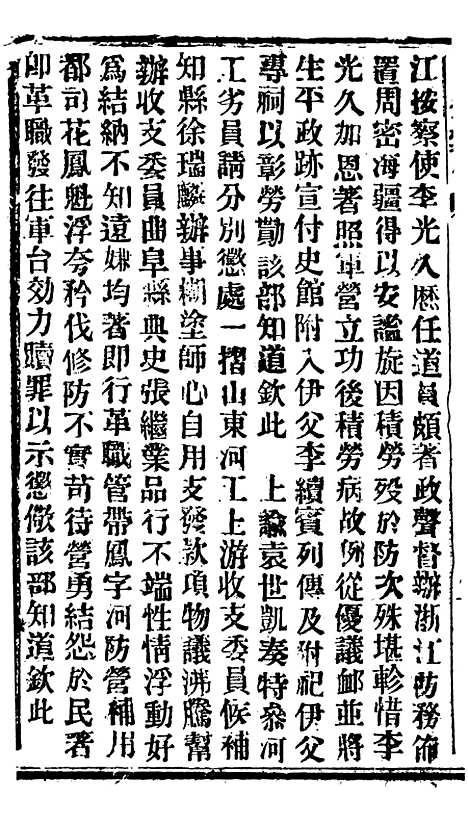 江按察使李光久歷任道員頗著政聲督辦浙江防務佈
置周密海疆得以安謐旋因積勞歿於防次殊堪軫惜李
光久加恩著照軍營立功後積勞病故例從優議卹並將
生平政跡宣付史館附入伊父李續賓列傳及附祀伊父
專祠以彰勞勩該部知道欽此　上諭袁世凱奏特參河
工劣員請分別懲處一摺山東河工上游收支委員候補
知縣徐瑞麟辦事糊塗師心自用支發款項物議沸騰幫
辦收支委員曲阜縣典史張繼業品行不端性情浮動好
爲結納不知遠嫌均著即行革職管帶鳳字河防營補用
都司花鳳魁浮夸矜伐修防不實苛待營勇結怨於民著
即革職發往軍台効力贖罪以示懲儆該部知道欽此